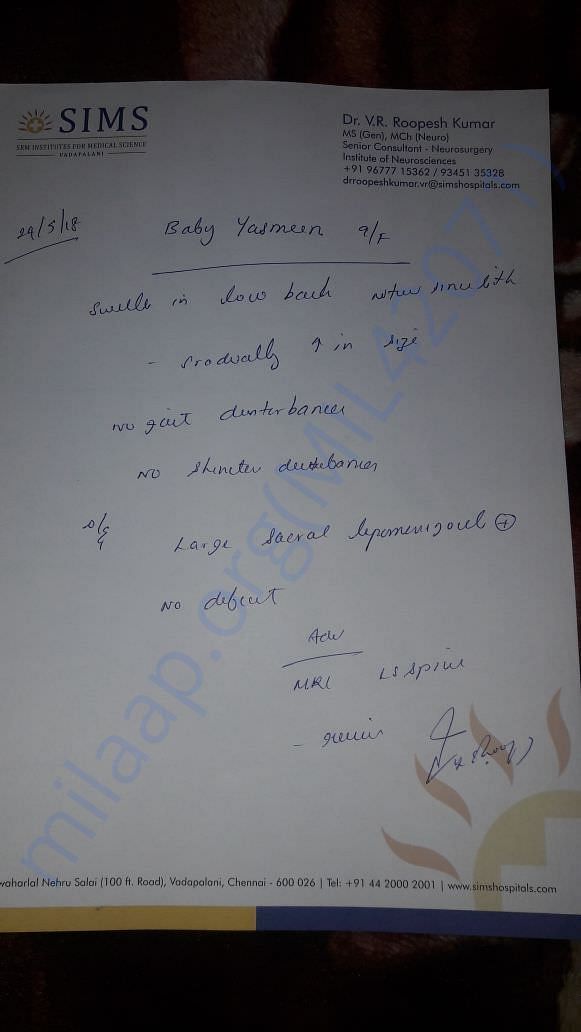 SIMS
SRM INSTITUTES FOR MEDICAL SCIENCE
VADAPALANI
Dr. V.R. Roopesh Kumar
MS (Gen), MCh (Neuro)
Senior Consultant - Neurosurgery
Institute of Neurosciences
+91 96777 15362 / 93451 35328
drroopeshkumar.vr@simshospitals.com
29/5/18
Baby Yasmeen 9/F
in low back
- gradually ↑ in size
No gait
No
Large sacral ⊕
No deficit
Adv
MRI LS Spine
- review
milaap.org(MIL42071)
waharlal Nehru Salai (100 ft. Road), Vadapalani, Chennai - 600 026 | Tel: +91 44 2000 2001 | www.simshospitals.com